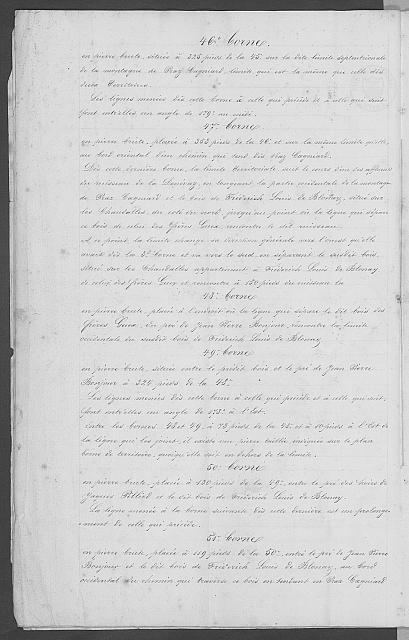 46e Borne.
en pierre brute, située à 325 pieds de la 45e sur la dite limite septentrionale
de la montagne de Praz Cagniard, limite qui est la même que celle des
deux territoires.
Les lignes menées dès cette borne à celle qui précède et à celle qui suit
font entr'elles un angle de 179° au midi.
47e Borne
en pierre brute, placée à 363 pieds de la 46e et sur la même limite qu'elle,
au bord oriental d'un chemin que tend dès Praz Cagniard.
Dès cette dernière borne, la limite territoriale suit le cours d'un des affluens
du ruisseau de la en longeant la partie occidentale de la montagne
de Praz Cagniard et le bois de Fréderich Louis de Blonay, situé sur
les Chandalles, du coté du nord, jusqu'au point où la ligne qui sépare
ce bois de celui des frères Cuux rencontre le dit ruisseau.
A ce point la limite change sa direction générale vers l'ouest qu'elle
avait dès la 3e borne et va vers le sud, en séparant le susdit bois,
situé sur les Chandalles appartenant à Fréderich Louis de Blonay,
de celui des frères et rencontre à 150 pieds du ruisseau la
48e Borne
en pierre brute, placée à l'endroit où la ligne qui sépare le dit bois des
frères du pré de Jean Pierre Bonjour, rencontre la limite
occidentale du susdit bois de Fréderich Louis de Blonay.
49e Borne
en pierre brute, située entre le prédit bois et le pré de Jean Pierre
Bonjour à 324 pieds de la 48e
Les lignes menées dès cette borne à celle qui précède et à celle qui suit,
font entr'elles un angle de 173° à l'Est.
Entre les bornes 48 et 49, à 75 pieds de la 48e et à 10 pieds à l'Est de
la ligne qui les joint, il existe une pierre taillée indiquée sur le plan
borne de territoire, quoiqu'elle soit en dehors de la limite.
50e Borne
en pierre brute, placée à 130 pieds de la 49e, entre le pré des hoirs de
Jaques et le dit bois de Fréderich Louis de Blonay.
La ligne menée à la borne suivante dès cette dernière est un prolonge-
-ment de celle qui précède.
51e Borne
en pierre brute, placée à 119 pieds de la 50e, entre le pré de Jean Pierre
Bonjour et le dit bois de Fréderich Louis de Blonay, au bord
occidental du chemin qui traverse ce bois en tendant en Praz Cagniard